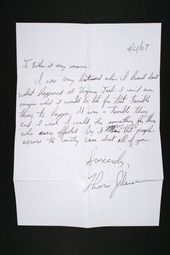 4/21/07
To Whom it may concern:
I was very distressed when I heard about
what happened at Virginia Tech. I can't even
imagine what it would be like for that terrible
thing to happen. It was a terrible thing
and I wish I could do something for those
who were affected by it. people
across the country care about all of you.
Sincerely,
Thomas